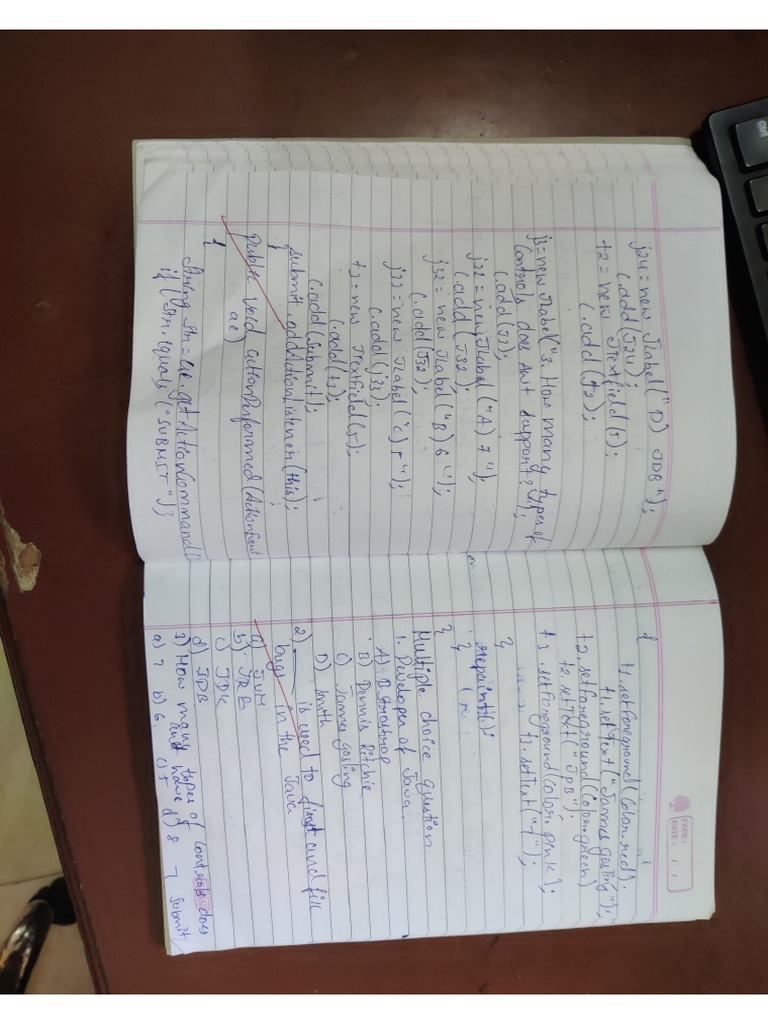 j24 = new JLabel("D) JDB");
c.add(J24);
t2 = new JTextfield(5);
c.add(t2);
j3 = new JLabel("3. How many types of
Controls does Awt support?");
c.add(J3);
j31 = new JLabel("A) 7");
c.add(J32);
j32 = new JLabel("B) 6");
c.add(J32);
j33 = new JLabel("C) 5");
c.add(j33);
t3 = new JTextField(5);
c.add(t3);
c.add(Submit);
submit.addActionListener(this);
}
public void actionPreformed(ActionEvent
ae)
{
String Str = ae.getActionCommand()
if (Str.equals("SUBMIT"));
{
t1.setForeground(Color.red).
t1.setText("James gosling");
t2.setForeground(Color.green)
t2.setText("JDB");
t3.setForeground(Color.pink);
t3.setText("7");
}
repaint();
}
}
Multiple choice question
1. Developer of Java.
A) B Strostrop
B) Dennis Ritchie
C) James gosling
D) Smith
2) is used to find and fix
bugs in the Java
a) JVM
b) JRE
c) JDK
d) JDB
3) How many types of controls does
awt have
a) 7 b) 6 c) 5 d) 8
Submit
PAGE:
DATE: / /